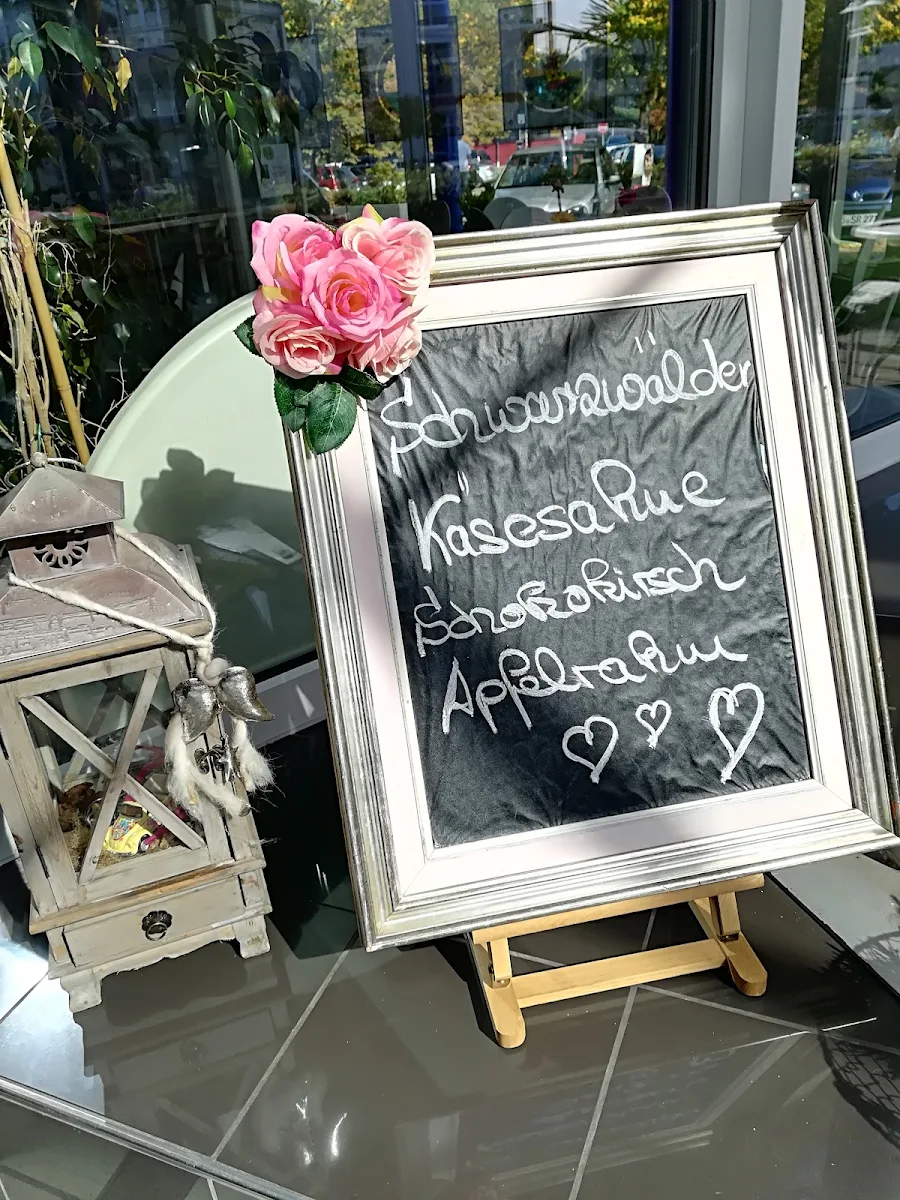 Schwarzwälder
Käsesahne
Schokokirsch
Apfelrahm